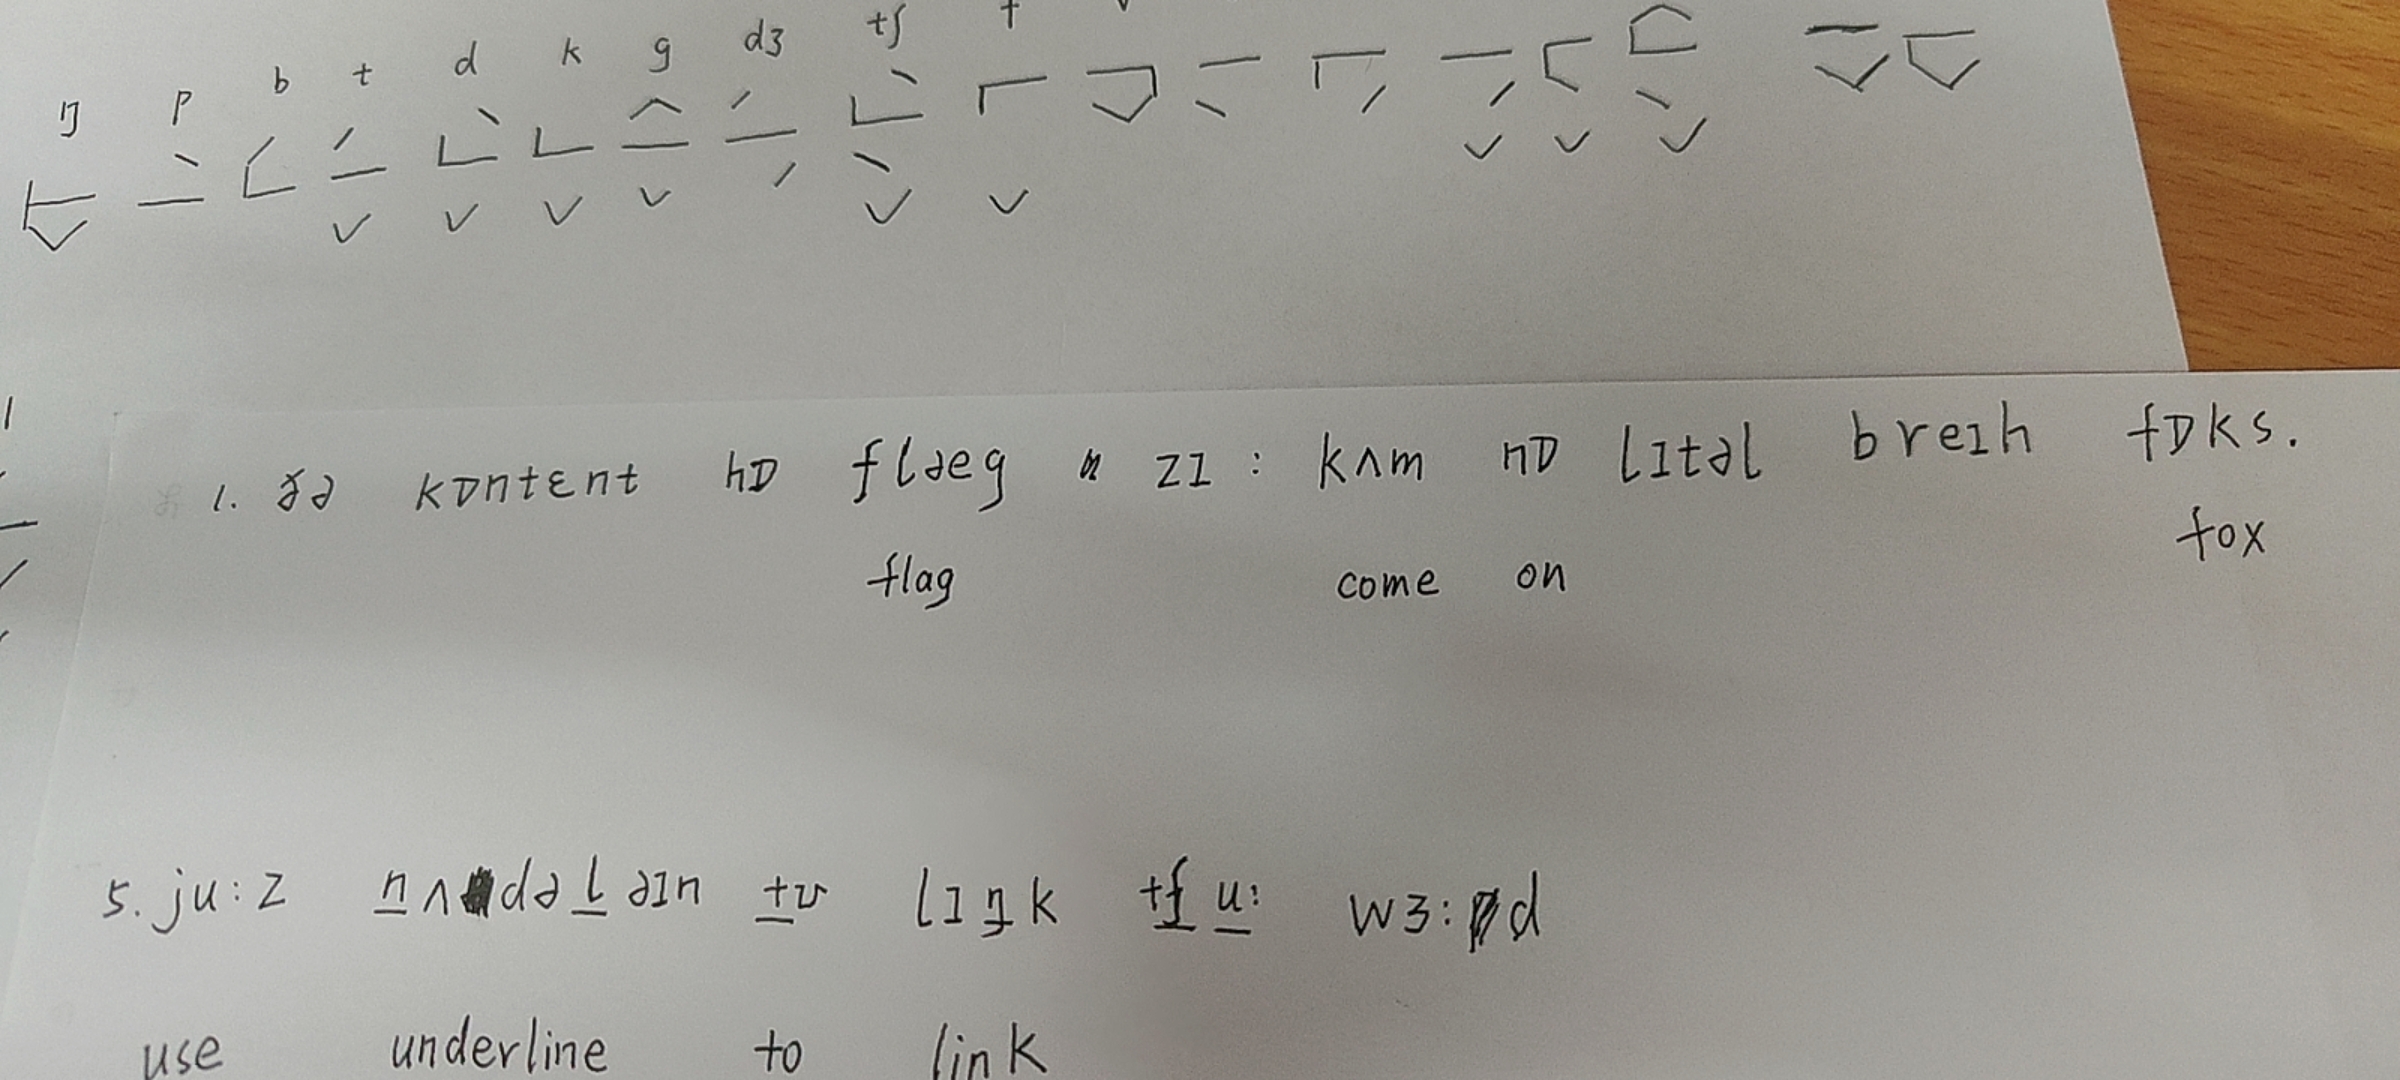 ŋ p b t d k g dʒ tʃ
1. ðə kɒntɛnt hɒ flaeg zɪ : kʌm nɒ lɪtəl breɪh fɒks.
flag come on fox
5. ju:z nʌdəlaɪn tʊ lɪŋk tʃu: wɜ:d
use underline to link